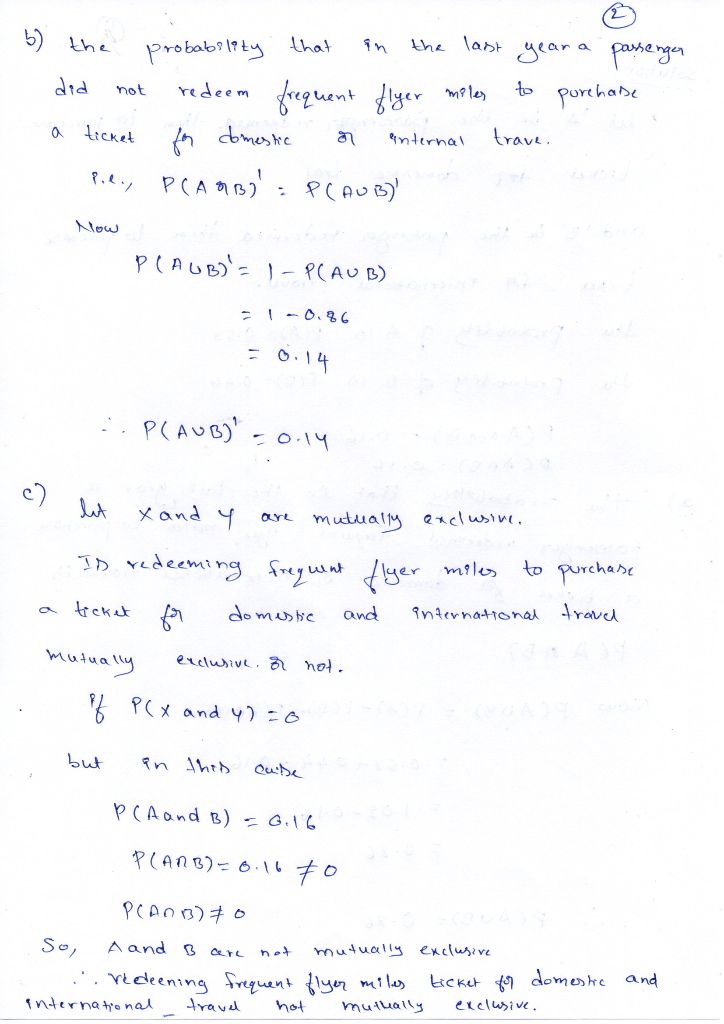 2
b) the probability that in the last year a passenger
did not redeem frequent flyer miles to purchase
a ticket for domestic or internal trave.
i.e., P(A or B)' = P(A∪B)'
Now
P(A∪B)' = 1 - P(A∪B)
= 1 - 0.86
= 0.14
∴ P(A∪B)' = 0.14
c) let x and y are mutually exclusive.
Is redeeming frequent flyer miles to purchase
a ticket for domestic and international travel
mutually exclusive. or not.
if P(x and y) = 0
but in this case
P(A and B) = 0.16
P(A∩B) = 0.16 ≠ 0
P(A∩B) ≠ 0
So, A and B are not mutually exclusive
∴ redeening frequent flyer miles ticket for domestic and
international travel not mutually exclusive.